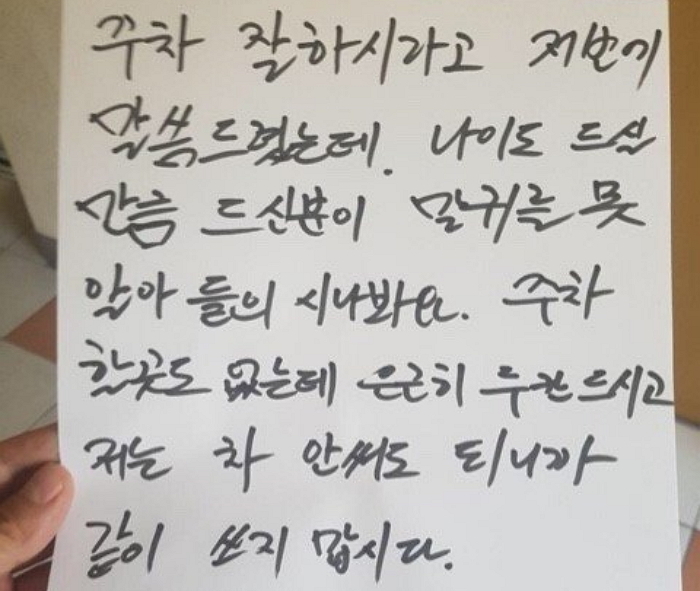 주차 잘하시라고 저번에
말씀드렸는데. 나이도 드실
만큼 드신분이 말귀를 못
알아 들으시나봐요. 주차
할곳도 없는데 은근히 두칸드시고
저는 차 안써도 되니까
같이 쓰지 맙시다.